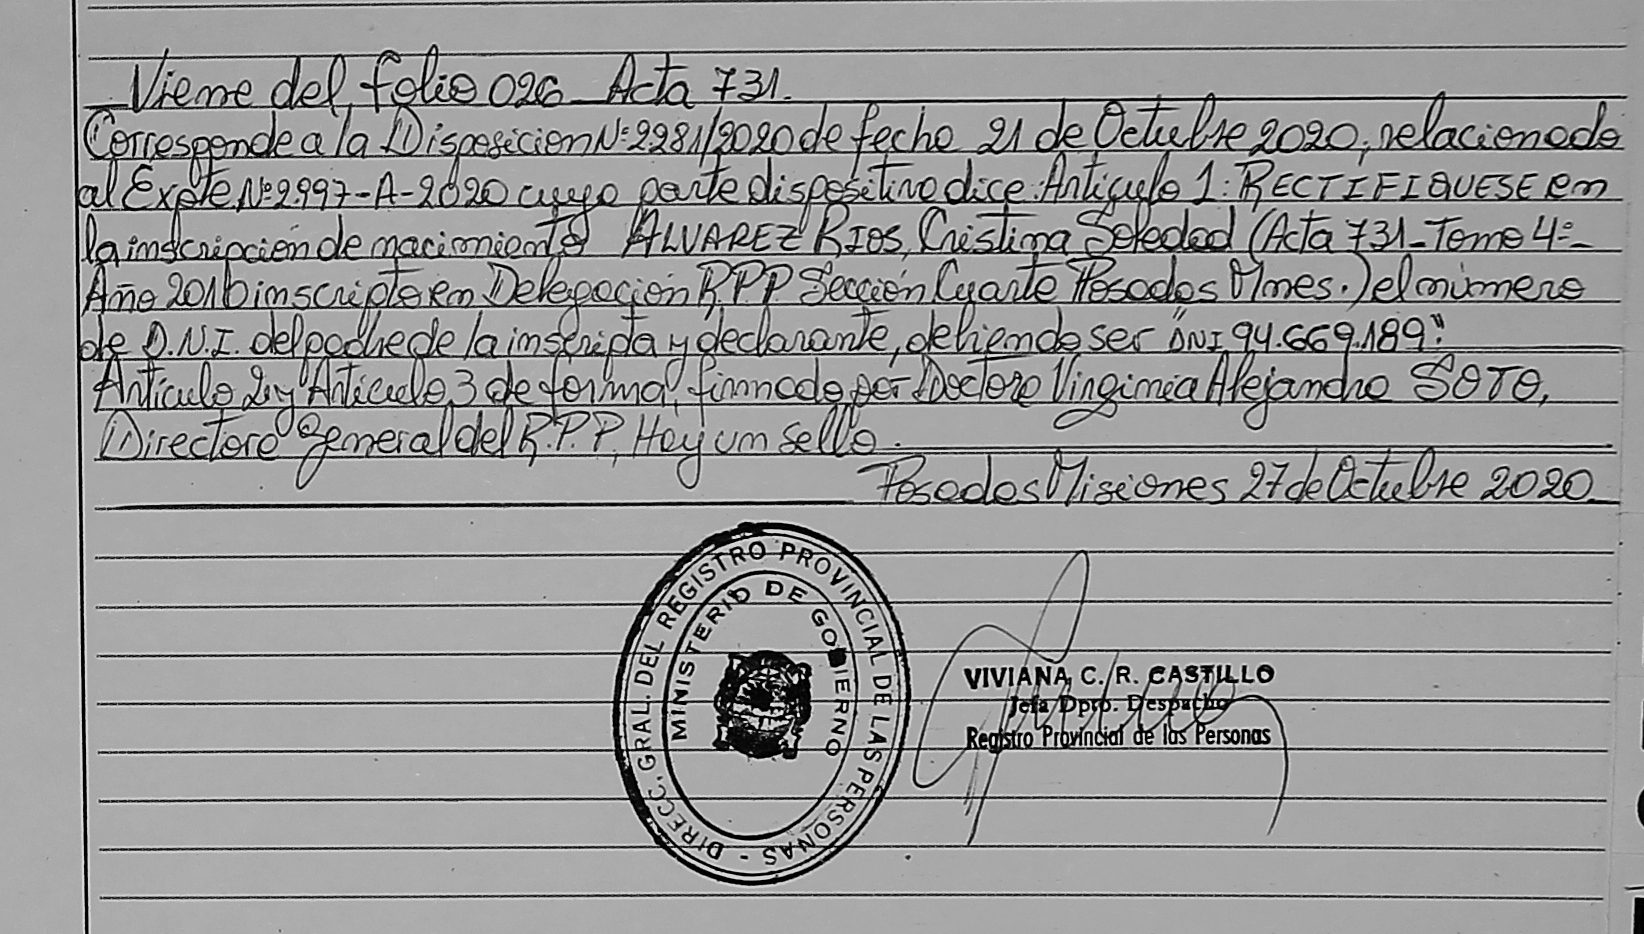 Viene del folio 026 Acta 731.
Corresponde a la Disposicion Nº 2281/2020 de fecha 21 de Octubre 2020, relacionado
al Expte Nº 2997-A-2020 cuya parte dispositiva dice: Articulo 1: RECTIFIQUESE en
la inscripción de nacimiento ALVAREZ RIOS, Cristina Soledad (Acta 731 - Tomo 4º -
Año 2016 inscripto en Delegación R.P.P Sección Cuarta Posadas Mnes.) el número
de D.N.I. del padre de la inscripta y declarante, debiendo ser "DNI 94.669.189".
Articulo 2 y Articulo 3 de forma, firmado por Doctora Virginia Alejandra SOTO,
Directora General del R.P.P, Hay un sello.
Posadas Misiones 27 de Octubre 2020
DIRECC. GRAL. DEL REGISTRO PROVINCIAL DE LAS PERSONAS -
MINISTERIO DE GOBIERNO
VIVIANA C. R. CASTILLO
Jefa Dpto. Despacho
Registro Provincial de las Personas